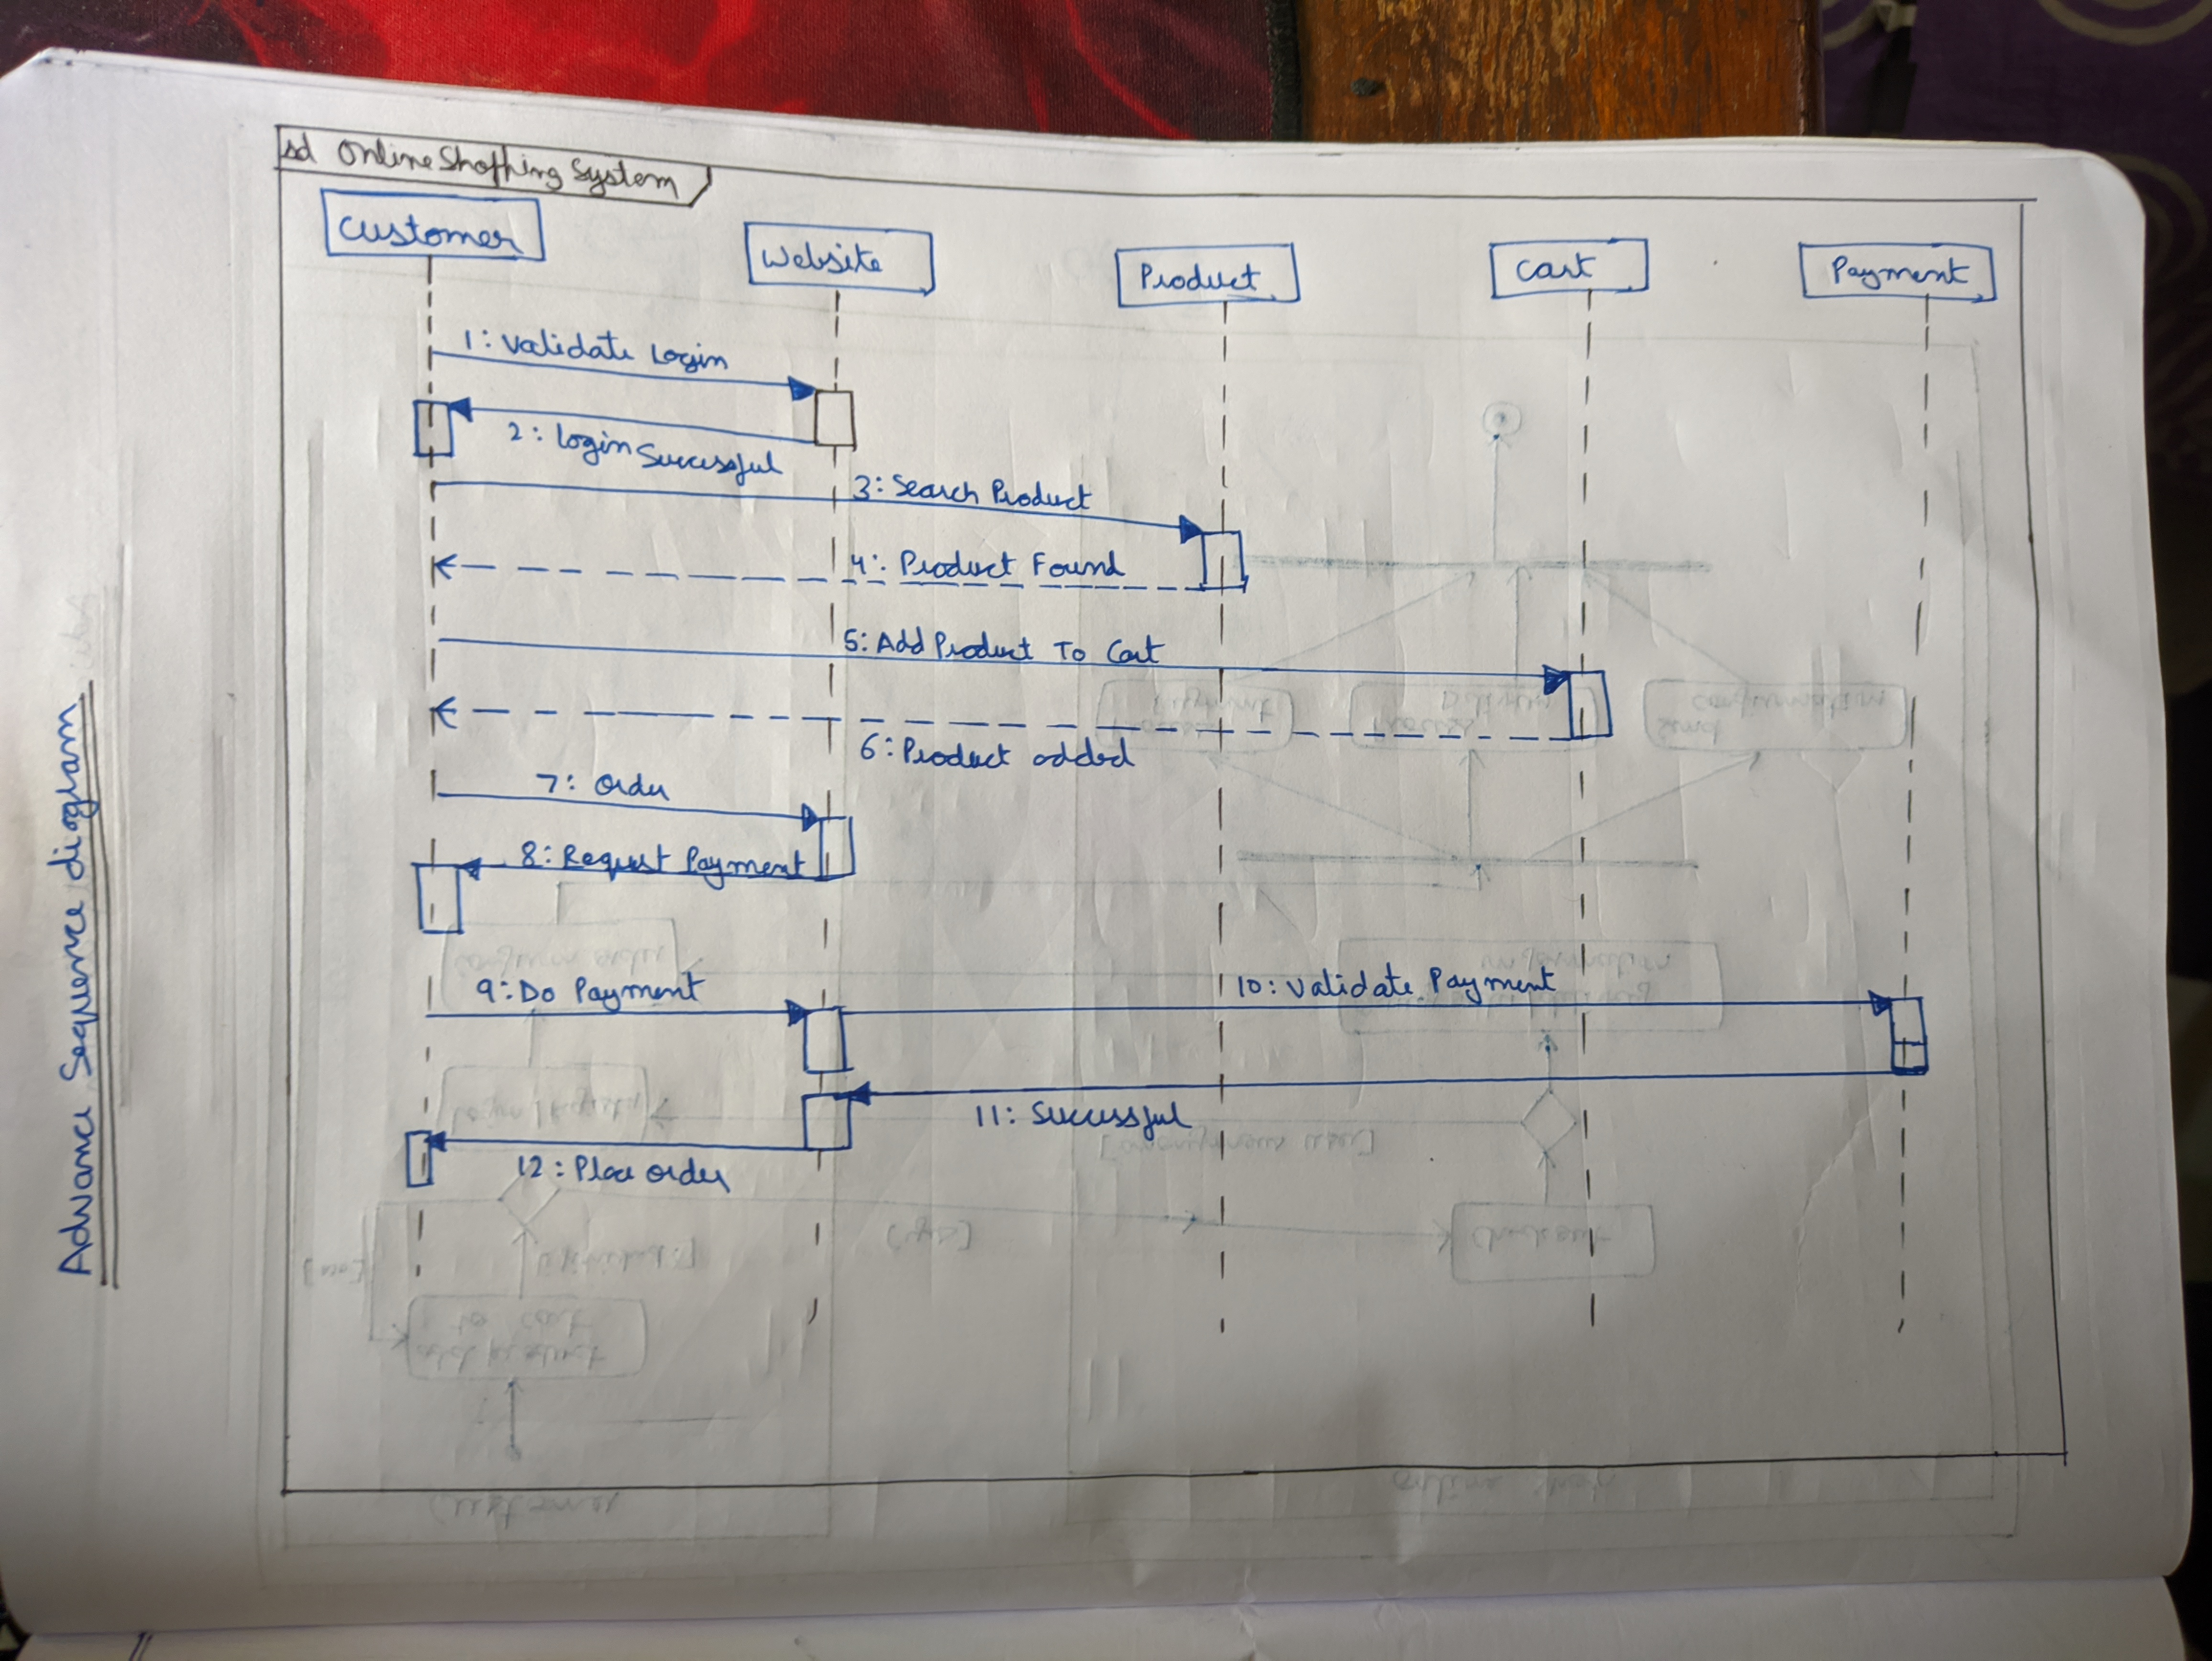 sd Online Shopping System
Customer
Website
Product
Cart
Payment
1: Validate Login
2: Login Successful
3: Search Product
4: Product Found
5: Add Product To Cart
6: Product added
7: Order
8: Request Payment
9: Do Payment
10: Validate Payment
11: Successful
12: Place order
Advance Sequence diagram